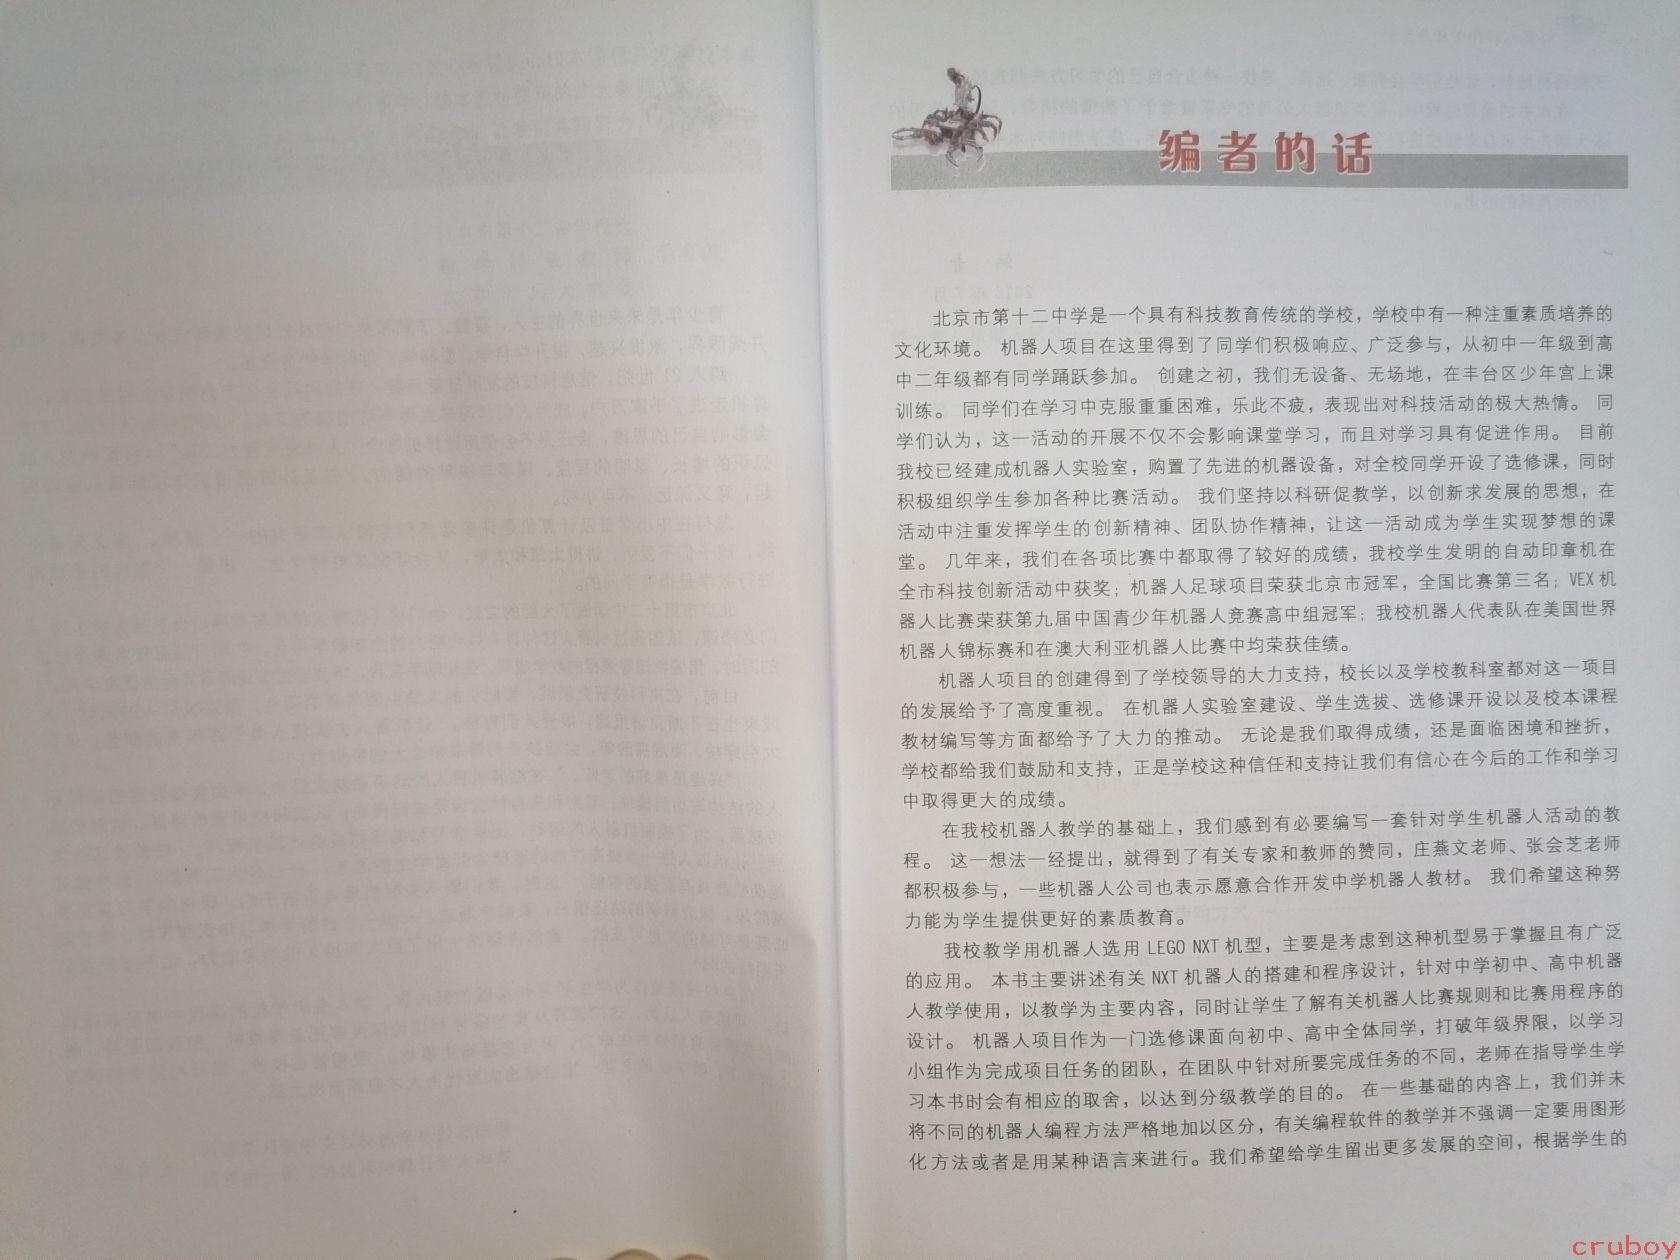 编者的话
北京市第十二中学是一个具有科技教育传统的学校，学校中有一种注重素质培养的
文化环境。 机器人项目在这里得到了同学们积极响应、广泛参与，从初中一年级到高
中二年级都有同学踊跃参加。 创建之初，我们无设备、无场地，在丰台区少年宫上课
训练。 同学们在学习中克服重重困难，乐此不疲，表现出对科技活动的极大热情。 同
学们认为，这一活动的开展不仅不会影响课堂学习，而且对学习具有促进作用。 目前
我校已经建成机器人实验室，购置了先进的机器设备，对全校同学开设了选修课，同时
积极组织学生参加各种比赛活动。 我们坚持以科研促教学，以创新求发展的思想，在
活动中注重发挥学生的创新精神、团队协作精神，让这一活动成为学生实现梦想的课
堂。 几年来，我们在各项比赛中都取得了较好的成绩，我校学生发明的自动印章机在
全市科技创新活动中获奖；机器人足球项目荣获北京市冠军，全国比赛第三名；VEX 机
器人比赛荣获第九届中国青少年机器人竞赛高中组冠军；我校机器人代表队在美国世界
机器人锦标赛和在澳大利亚机器人比赛中均荣获佳绩。
机器人项目的创建得到了学校领导的大力支持，校长以及学校教科室都对这一项目
的发展给予了高度重视。 在机器人实验室建设、学生选拔、选修课开设以及校本课程
教材编写等方面都给予了大力的推动。 无论是我们取得成绩，还是面临困境和挫折，
学校都给我们鼓励和支持，正是学校这种信任和支持让我们有信心在今后的工作和学习
中取得更大的成绩。
在我校机器人教学的基础上，我们感到有必要编写一套针对学生机器人活动的教
程。 这一想法一经提出，就得到了有关专家和教师的赞同，庄燕文老师、张会芝老师
都积极参与，一些机器人公司也表示愿意合作开发中学机器人教材。 我们希望这种努
力能为学生提供更好的素质教育。
我校教学用机器人选用 LEGO NXT 机型，主要是考虑到这种机型易于掌握且有广泛
的应用。 本书主要讲述有关 NXT 机器人的搭建和程序设计，针对中学初中、高中机器
人教学使用，以教学为主要内容，同时让学生了解有关机器人比赛规则和比赛用程序的
设计。 机器人项目作为一门选修课面向初中、高中全体同学，打破年级界限，以学习
小组作为完成项目任务的团队，在团队中针对所要完成任务的不同，老师在指导学生学
习本书时会有相应的取舍，以达到分级教学的目的。 在一些基础的内容上，我们并未
将不同的机器人编程方法严格地加以区分，有关编程软件的教学并不强调一定要用图形
化方法或者是用某种语言来进行。我们希望给学生留出更多发展的空间，根据学生的
cruboy